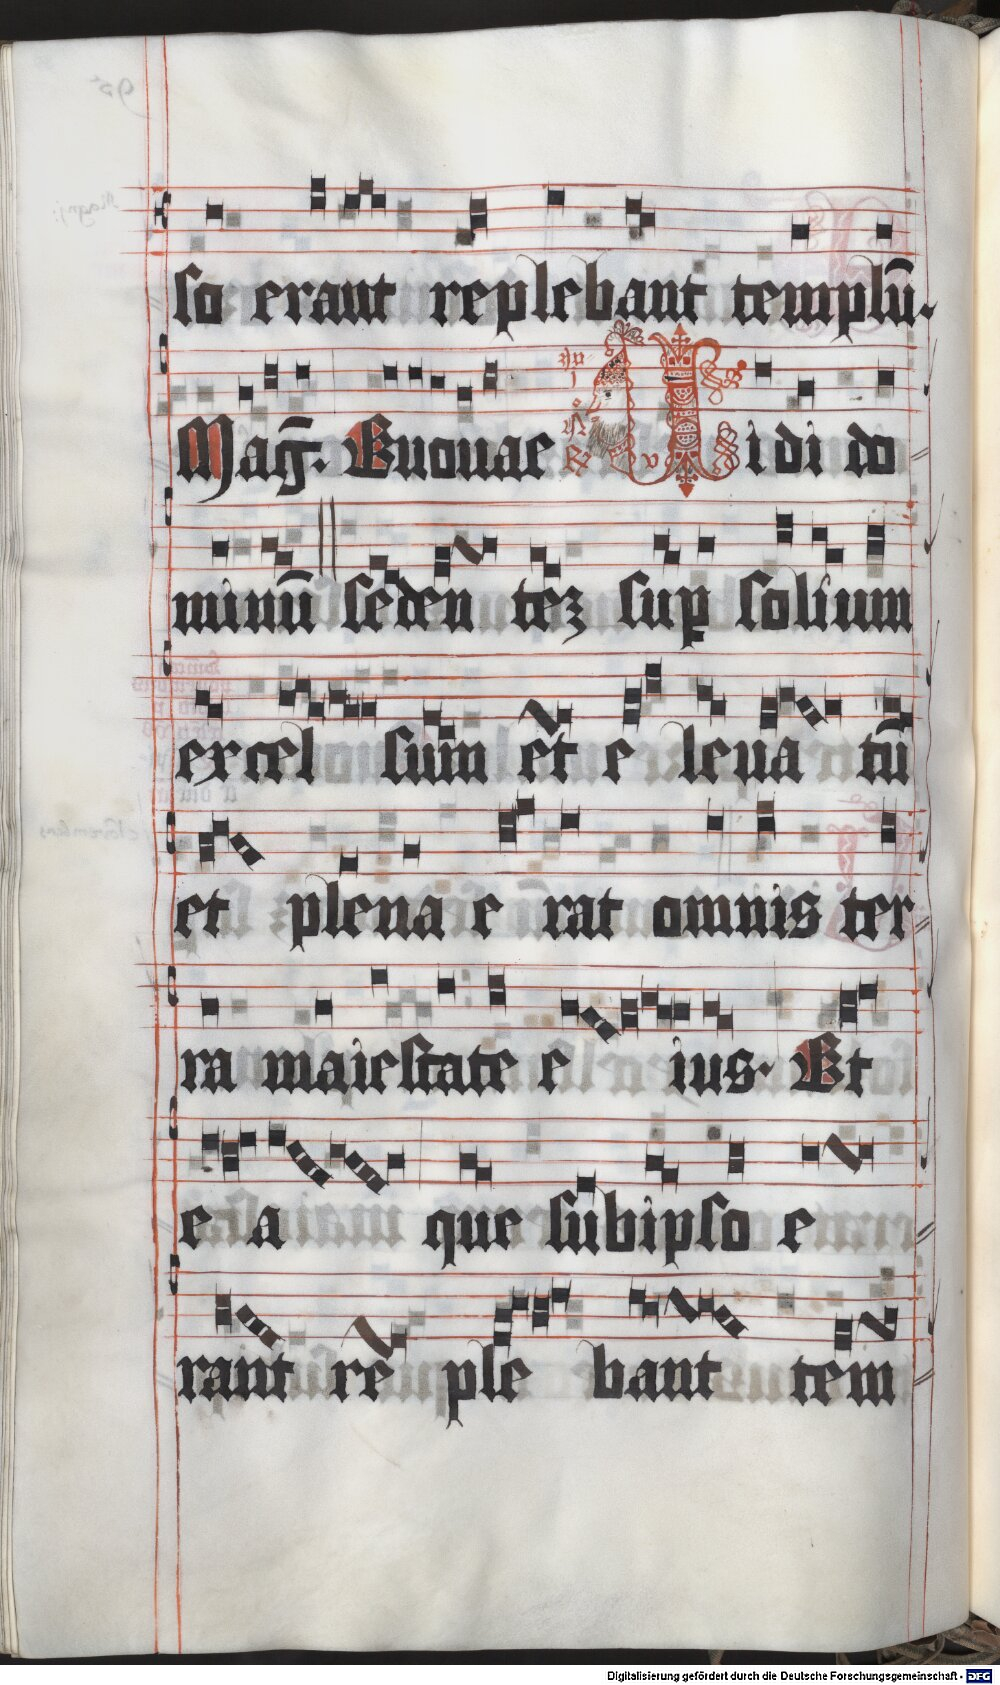 so erant replebant templū.
Mag̃. Euouae Vidi do
minū seden tez sup solium
excel sum et e leua tū
et plena e rat omnis ter
ra maiestate e ius. Et
e a que sub ipso e
rant re ple bant tem
Digitalisierung gefördert durch die Deutsche Forschungsgemeinschaft - DFG